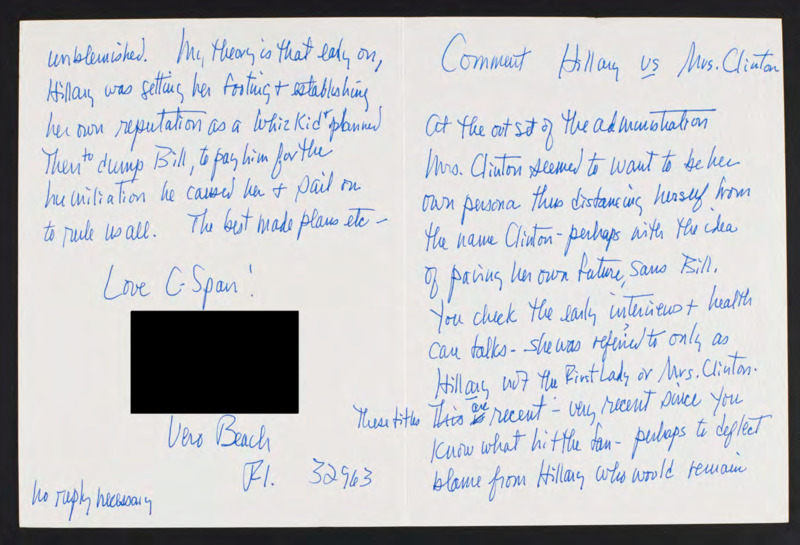 Comment Hillary vs Mrs. Clinton
At the outset of the administration
Mrs. Clinton seemed to want to be her
own persona thus distancing herself from
the name Clinton - perhaps with the idea
of paving her own future, sans Bill.
You check the early interviews + health
care talks - she was referred to only as
Hillary not the First Lady or Mrs. Clinton.
These titles are recent - very recent since you
know what hit the fan - perhaps to deflect
blame from Hillary who would remain
unblemished. My theory is that early on,
Hillary was setting her footing + establishing
her own reputation as a whiz kid + planned
then to dump Bill, to pay him for the
humiliation he caused her + sail on
to rule us all. The best made plans etc -
Love C-Span!
Vero Beach
Fl. 32963
no reply necessary